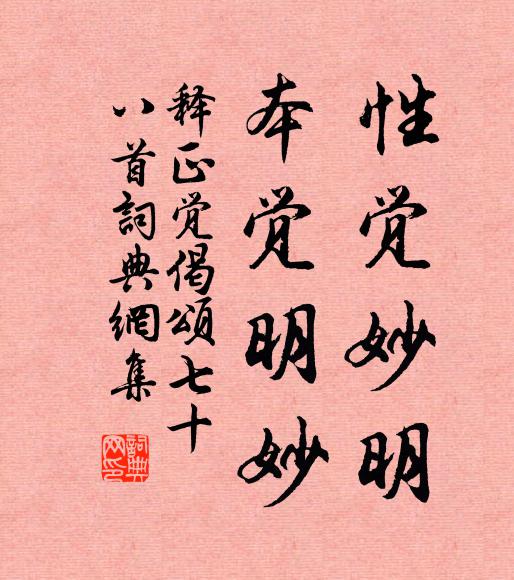 性觉妙明
本觉明妙
释正觉偈颂七十
八首詞典網集
詞典
网印